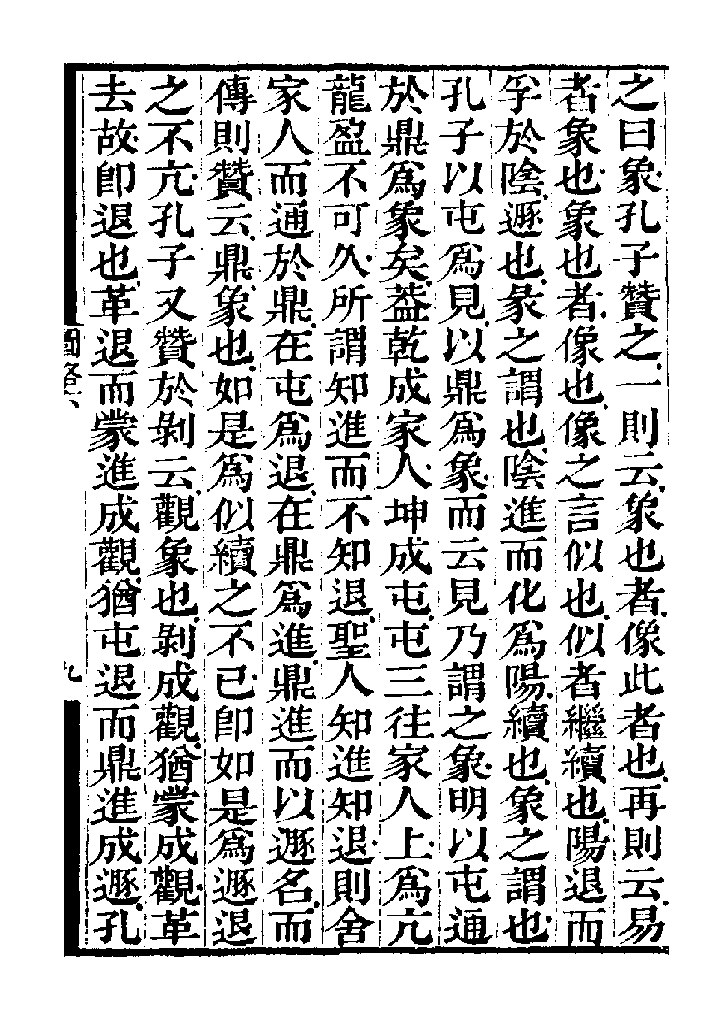 之曰象孔子贊之一則云象也者像此者也再則云易
者象也象也者像也像之言似也似者繼續也陽退而
孚於陰遯也彖之謂也陰進而化爲陽續也象之謂也
孔子以屯爲見以鼎爲象而云見乃謂之象明以屯通
於鼎爲象矣葢乾成家人坤成屯屯三往家人上爲亢
龍盈不可久所謂知進而不知退聖人知進知退則舍
家人而通於鼎在屯爲退在鼎爲進鼎進而以遯名而
傳則贊云鼎象也如是爲似續之不已卽如是爲遯退
之不亢孔子又贊於剝云觀象也剝成觀猶蒙成觀革
去故卽退也革退而蒙進成觀猶屯退而鼎進成遯孔
圖
九